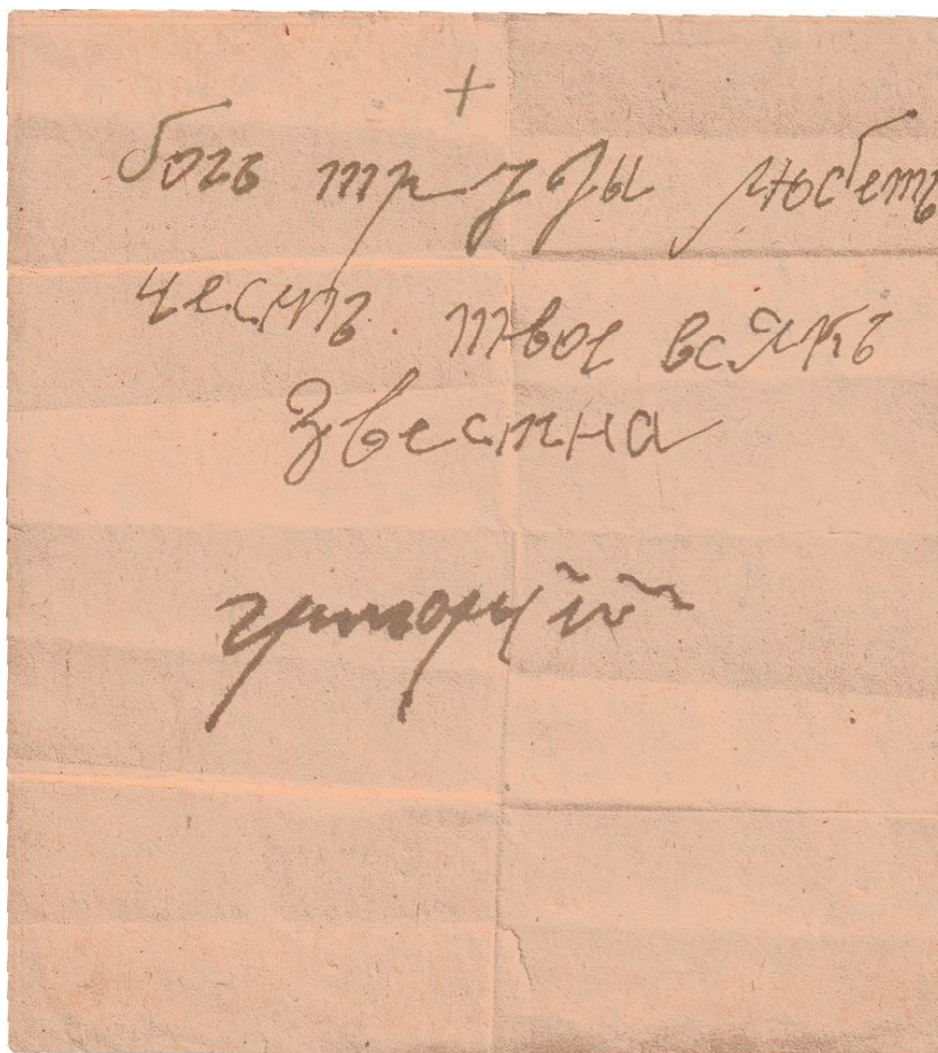 +
богъ труды любетъ
чесшъ твое всямъ
звестна
григорий